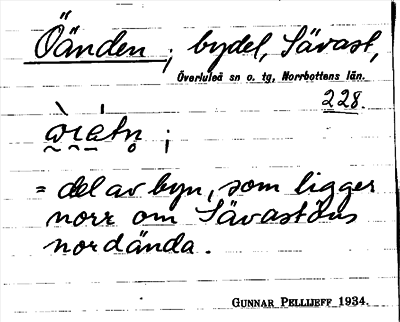 Öänden ; bydel, Sävast,
Överluleå sn o. tg, Norrbottens län.
228.
= del av byn, som ligger
norr om Sävastöns
nordända.
GUNNAR PELLIJEFF 1934.